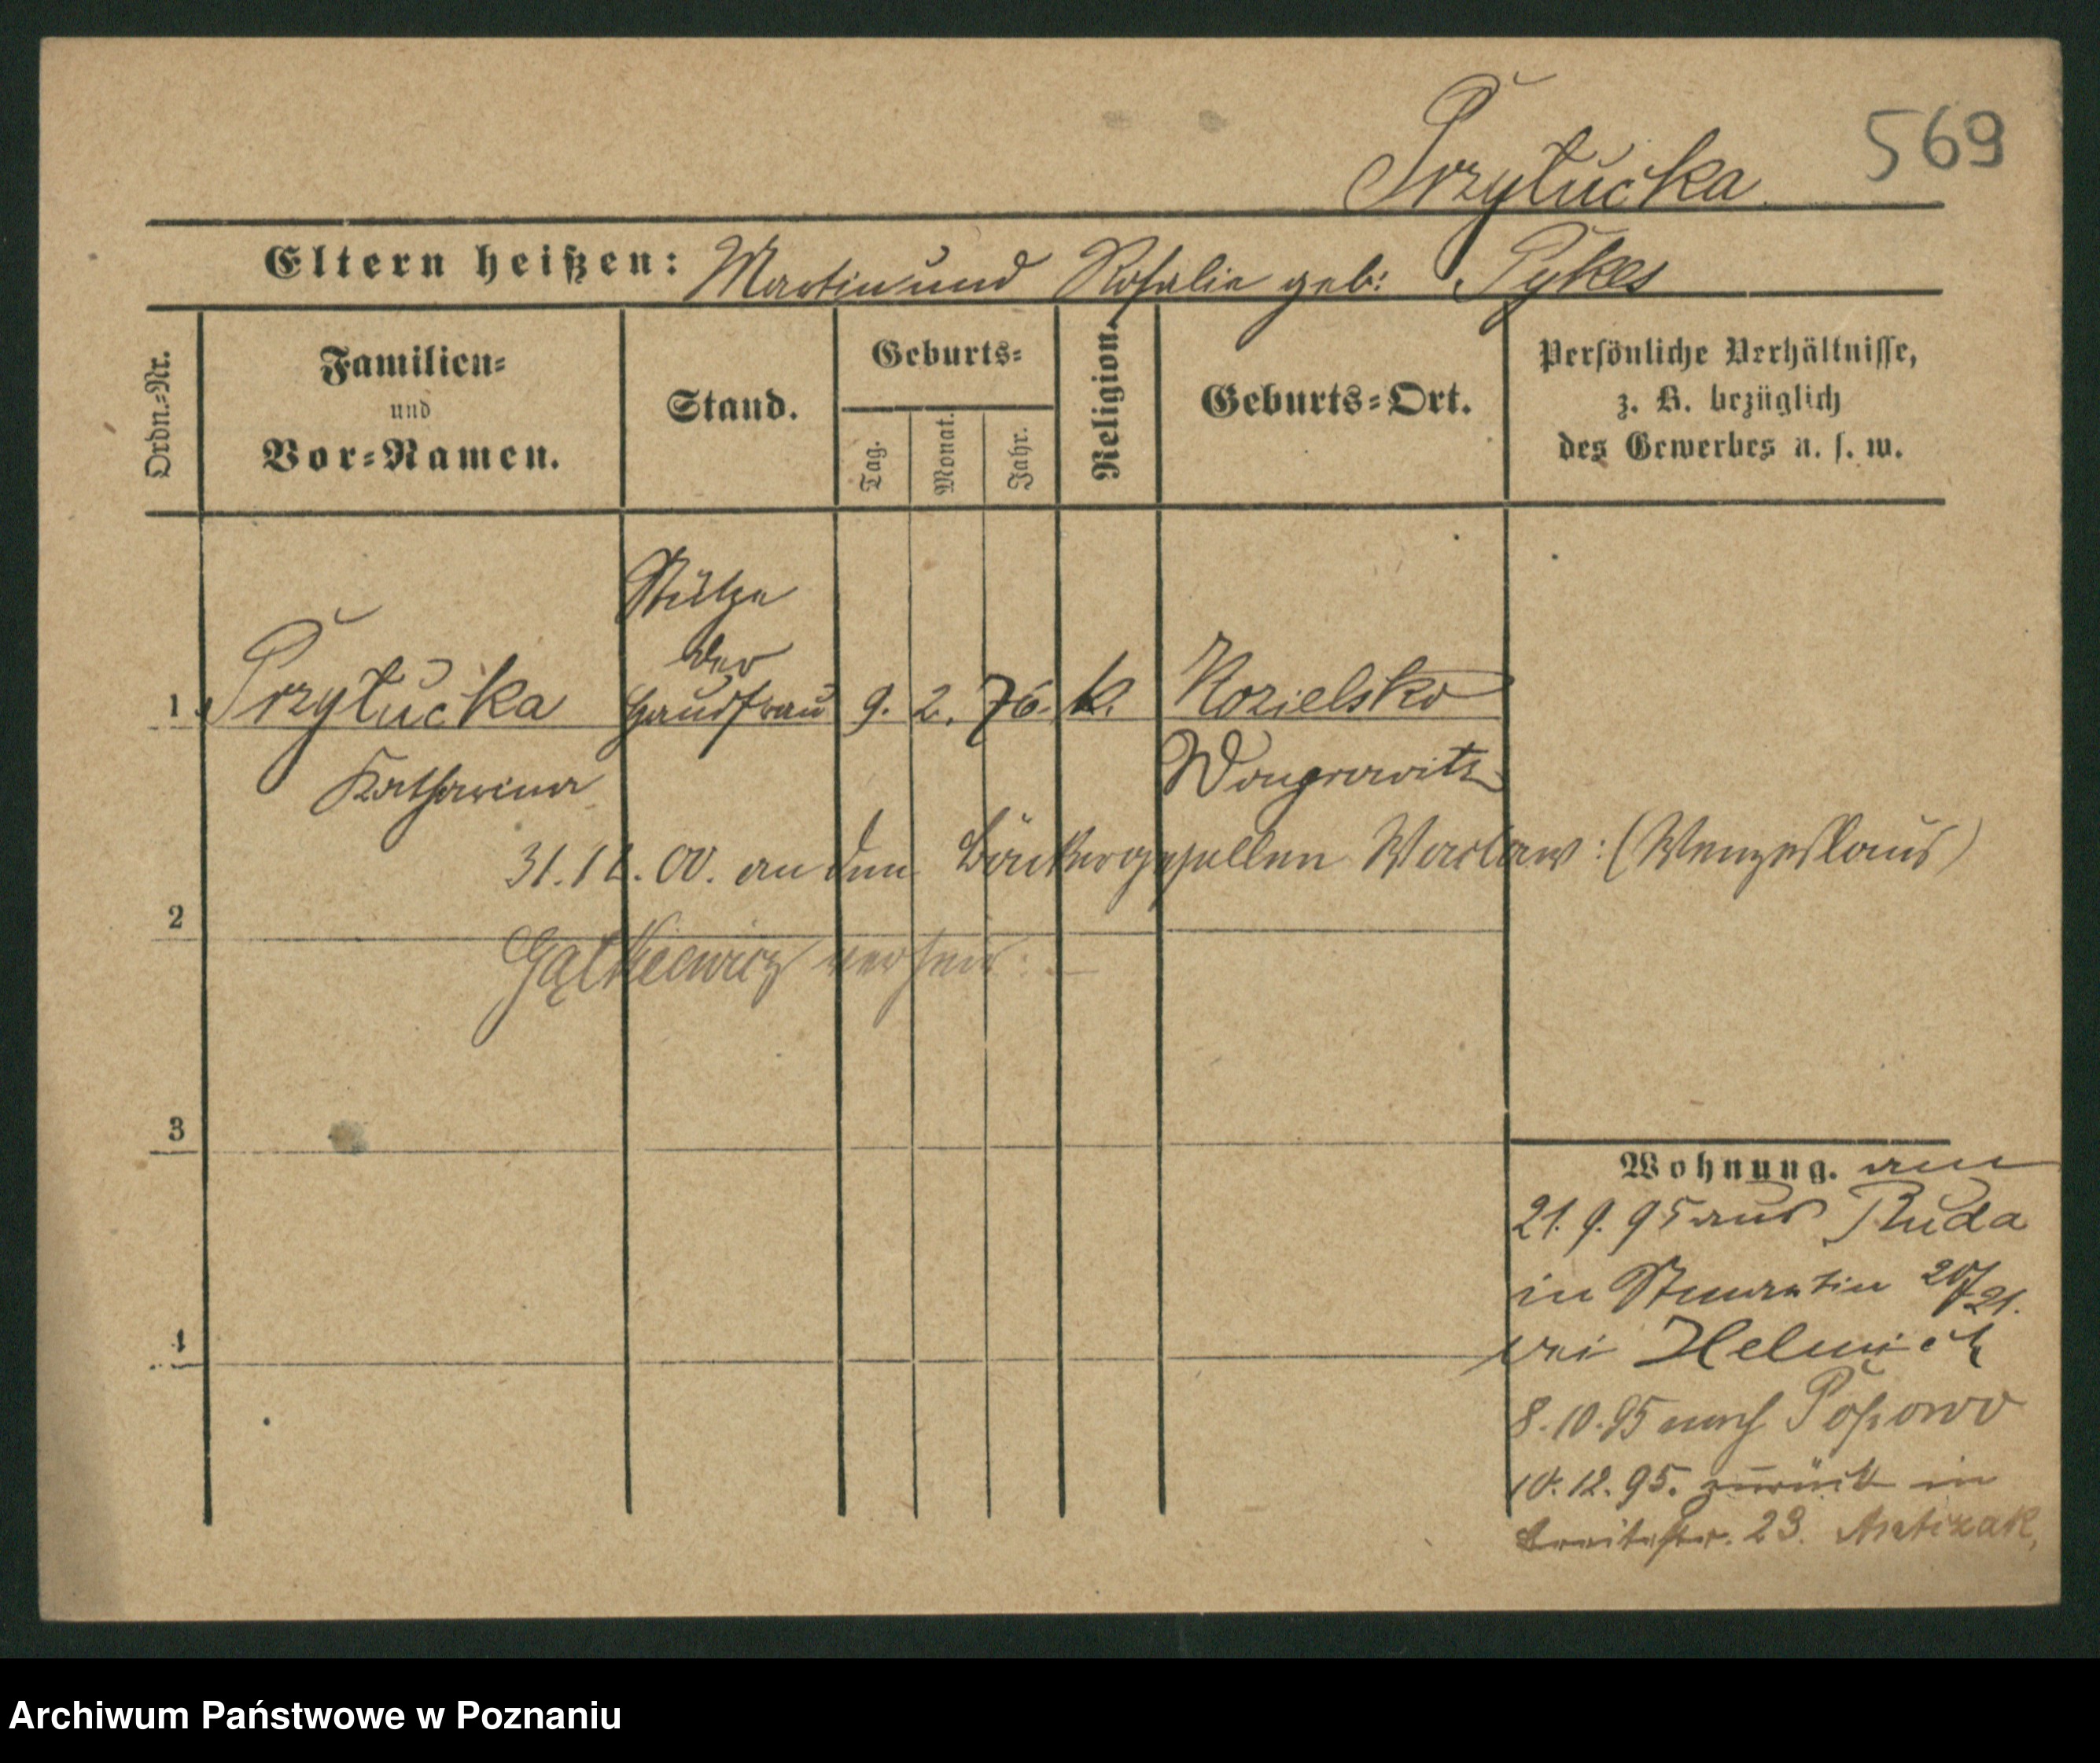 569
Przyłucka
Eltern heißen: Martin und Rosalie geb: Pykes
Ordn.-Nr.
Familien-
und
Vor-Namen.
Stand.
Geburts-
Tag.
Monat.
Jahr.
Religion.
Geburts-Ort.
Persönliche Verhältnisse,
z. B. bezüglich
des Gewerbes u. s. w.
Stütze
der
1 Przyłucka Hausfrau 9. 2. 76. k. Kozielsko
Katharina Wongrowitz
31.12.00. an den Bäckergesellen Waclaw: (Wenzeslaus)
2
Gątkiewicz verheir: —
3
4
Wohnung. am
21.9.95 aus Ruda
in St martin 20/21.
bei
8.10.95 nach Posowo
10.12.95. zurück in
Breitestr. 23.
Archiwum Państwowe w Poznaniu